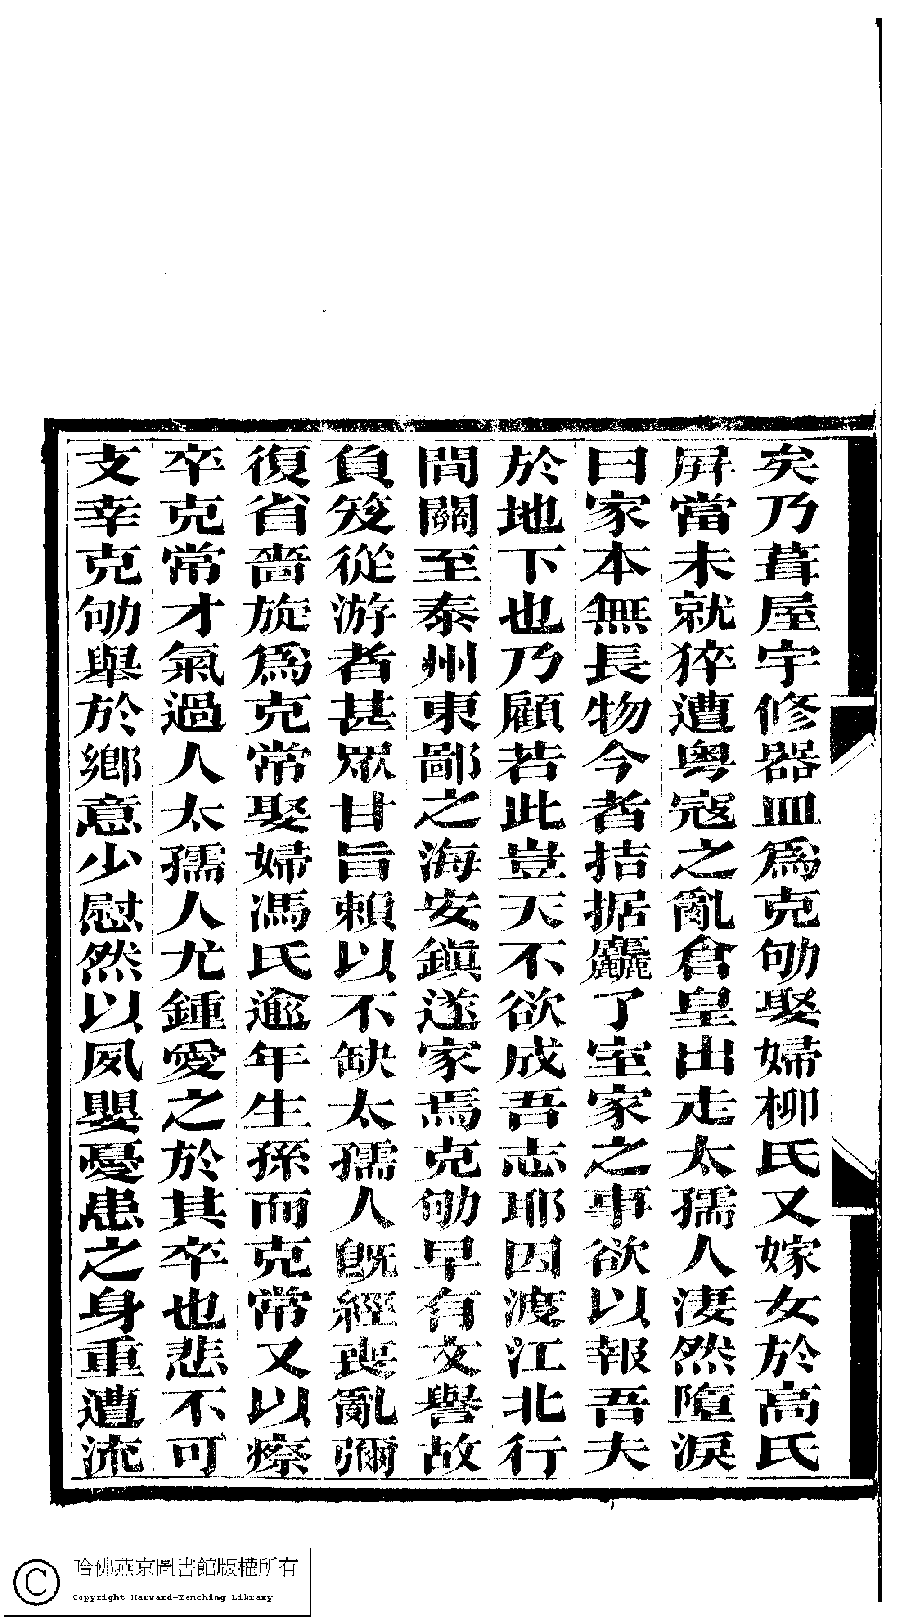 矣乃葺屋宇修器皿爲克劬娶婦柳氏又嫁女於高氏
屏當未就猝遭粤寇之亂倉皇出走太孺人淒然墮淚
曰家本無長物今者拮据麤了室家之事欲以報吾夫
於地下也乃顧若此豈天不欲成吾志耶因渡江北行
間關至泰州東鄙之海安鎭遂家焉克劬早有文譽故
負笈從游者甚眾甘旨賴以不缺太孺人旣經喪亂彌
復省嗇旋爲克常娶婦馮氏逾年生孫而克常又以瘵
卒克常才氣過人太孺人尤鍾愛之於其卒也悲不可
支幸克劬舉於鄉意少慰然以夙嬰憂患之身重遭流
哈佛燕京圖書館版權所有
Copyright Harvard-Yenching Library